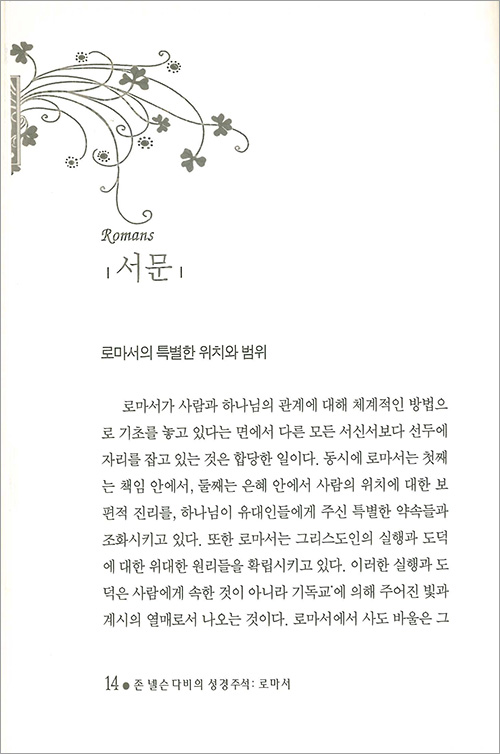 Romans
| 서문 |
로마서의 특별한 위치와 범위
로마서가 사람과 하나님의 관계에 대해 체계적인 방법으
로 기초를 놓고 있다는 면에서 다른 모든 서신서보다 선두에
자리를 잡고 있는 것은 합당한 일이다. 동시에 로마서는 첫째
는 책임 안에서, 둘째는 은혜 안에서 사람의 위치에 대한 보
편적 진리를, 하나님이 유대인들에게 주신 특별한 약속들과
조화시키고 있다. 또한 로마서는 그리스도인의 실행과 도덕
에 대한 위대한 원리들을 확립시키고 있다. 이러한 실행과 도
덕은 사람에게 속한 것이 아니라 기독교*에 의해 주어진 빛과
계시의 열매로서 나오는 것이다. 로마서에서 사도 바울은 그
14 ● 존 넬슨 다비의 성경주석: 로마서